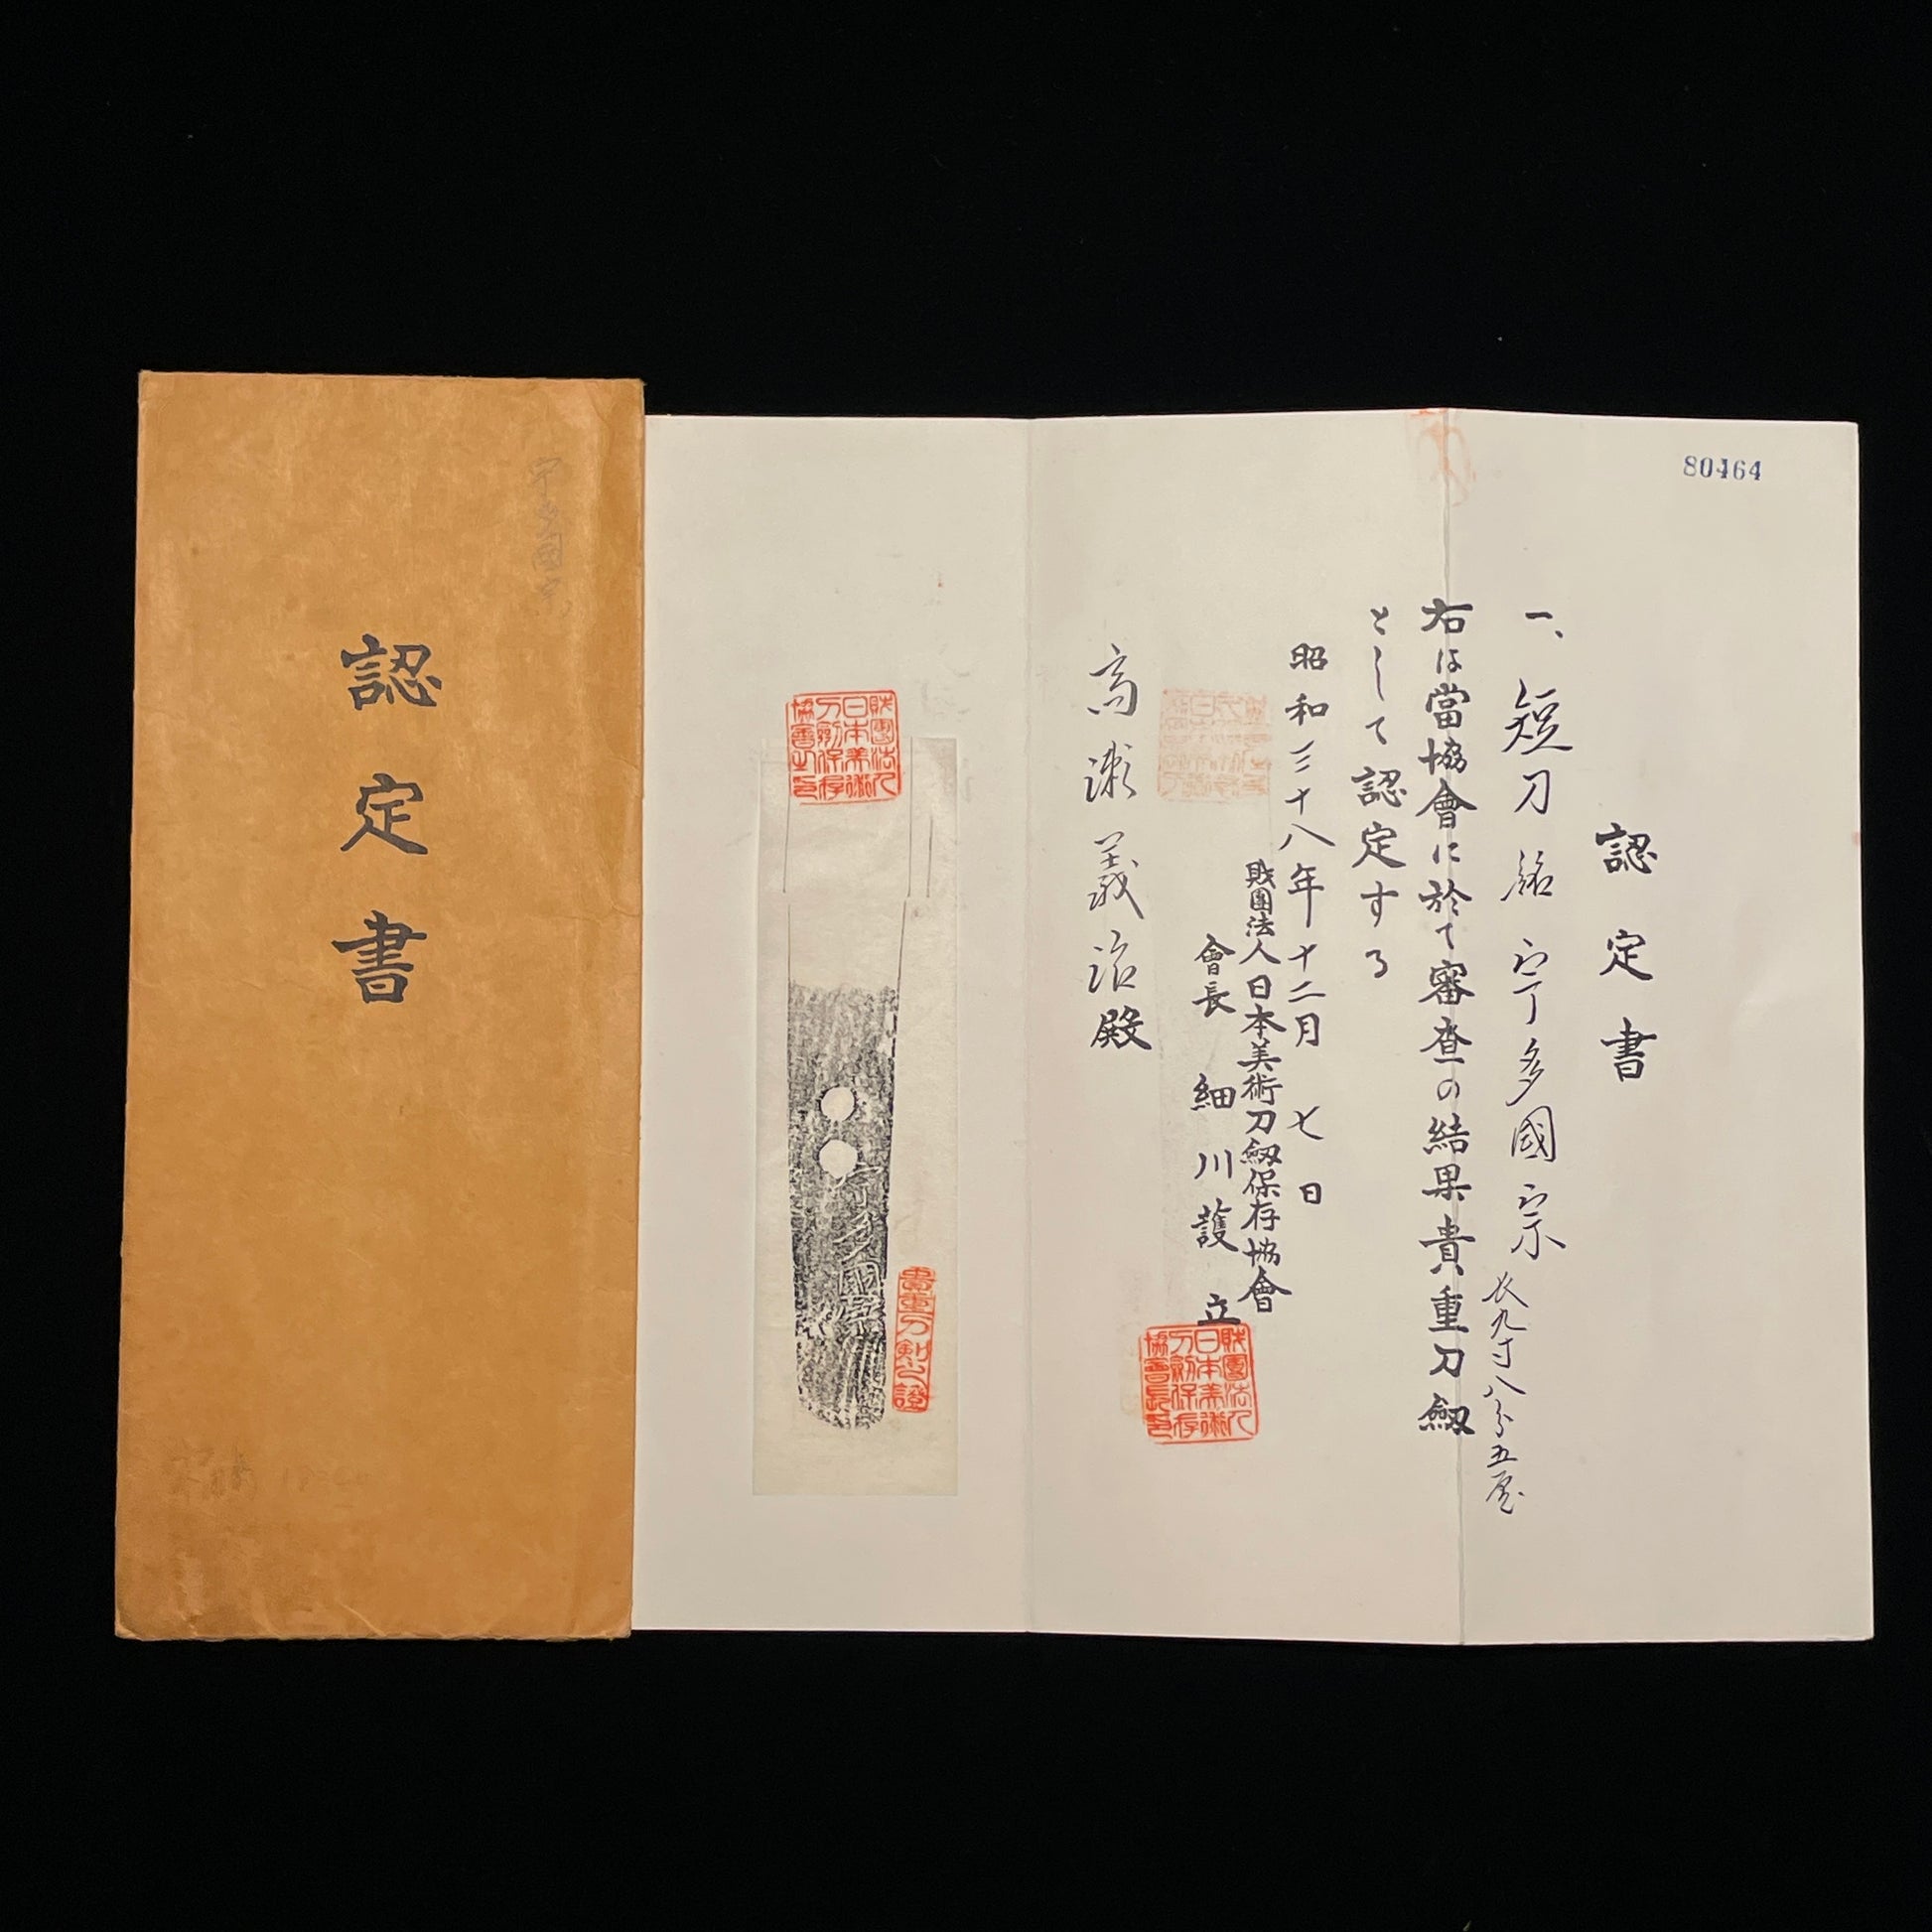 80464
認定書
一、短刀 銘 宇多國宗 長九寸八分五厘
右は當協會に於て審査の結果貴重刀劔
として認定する
昭和三十八年十二月七日
財團法人日本美術刀劔保存協會
會長 細川護立
財團法人日本美術刀劔保存協會長印
高瀬義治殿
財團法人日本美術刀劔保存協會之印
多國宗
貴重刀剣之證
認定書
宇多國宗